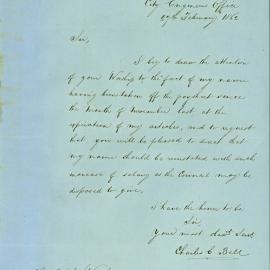 City Engineers Office
27th February 1862
Sir,
I beg to draw the attention
of your Worship to the fact of my name
having been taken off the paysheet since
the Month of November last at the
expiration of my articles, and to request
that you will be pleased to direct that
my name should be reinstated with such
increase of salary as the Council may be
disposed to give.
I have the honor to be
Sir,
Your most obedt Servt
Charles C Bell